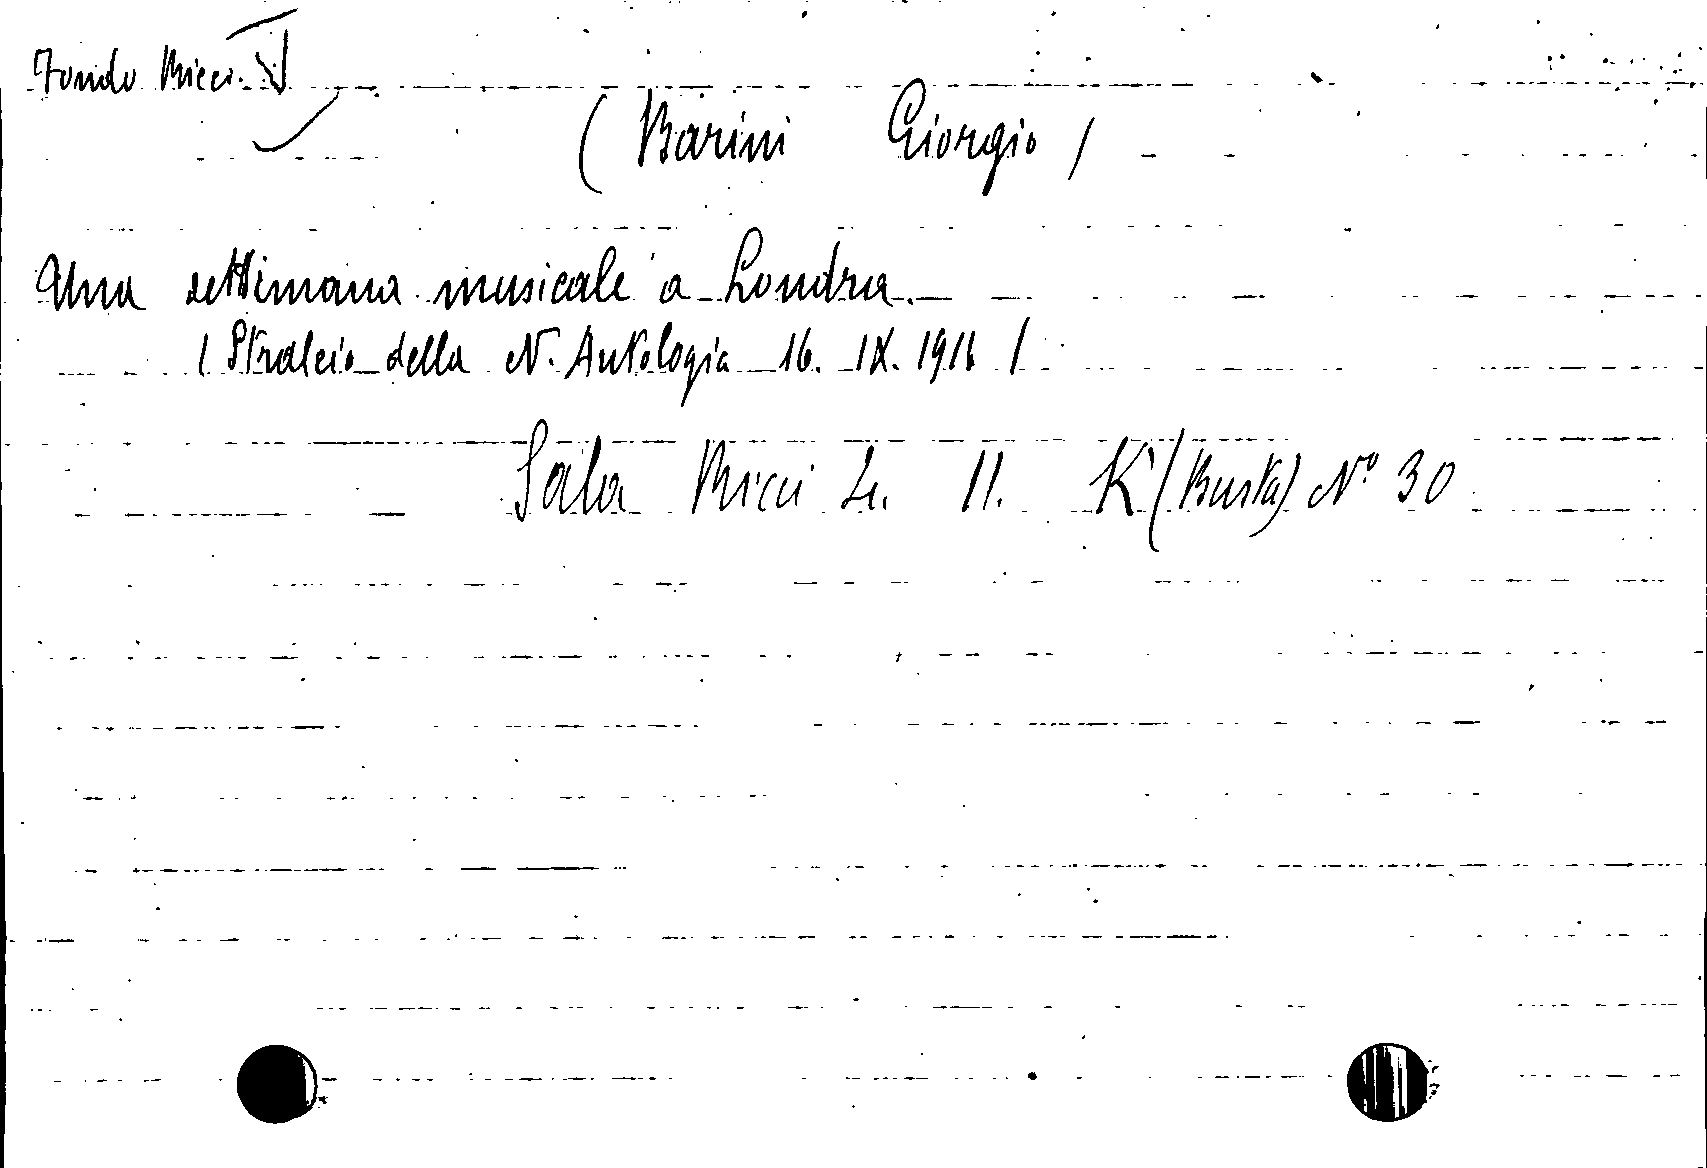 Fondo Ricci.
( Barini Giorgio )
Una settimana musicale a Londra.
( Stralcio della N. Antologia 16. IX. 1916 )
Sala Ricci L. II. K (Busta) Nº 30